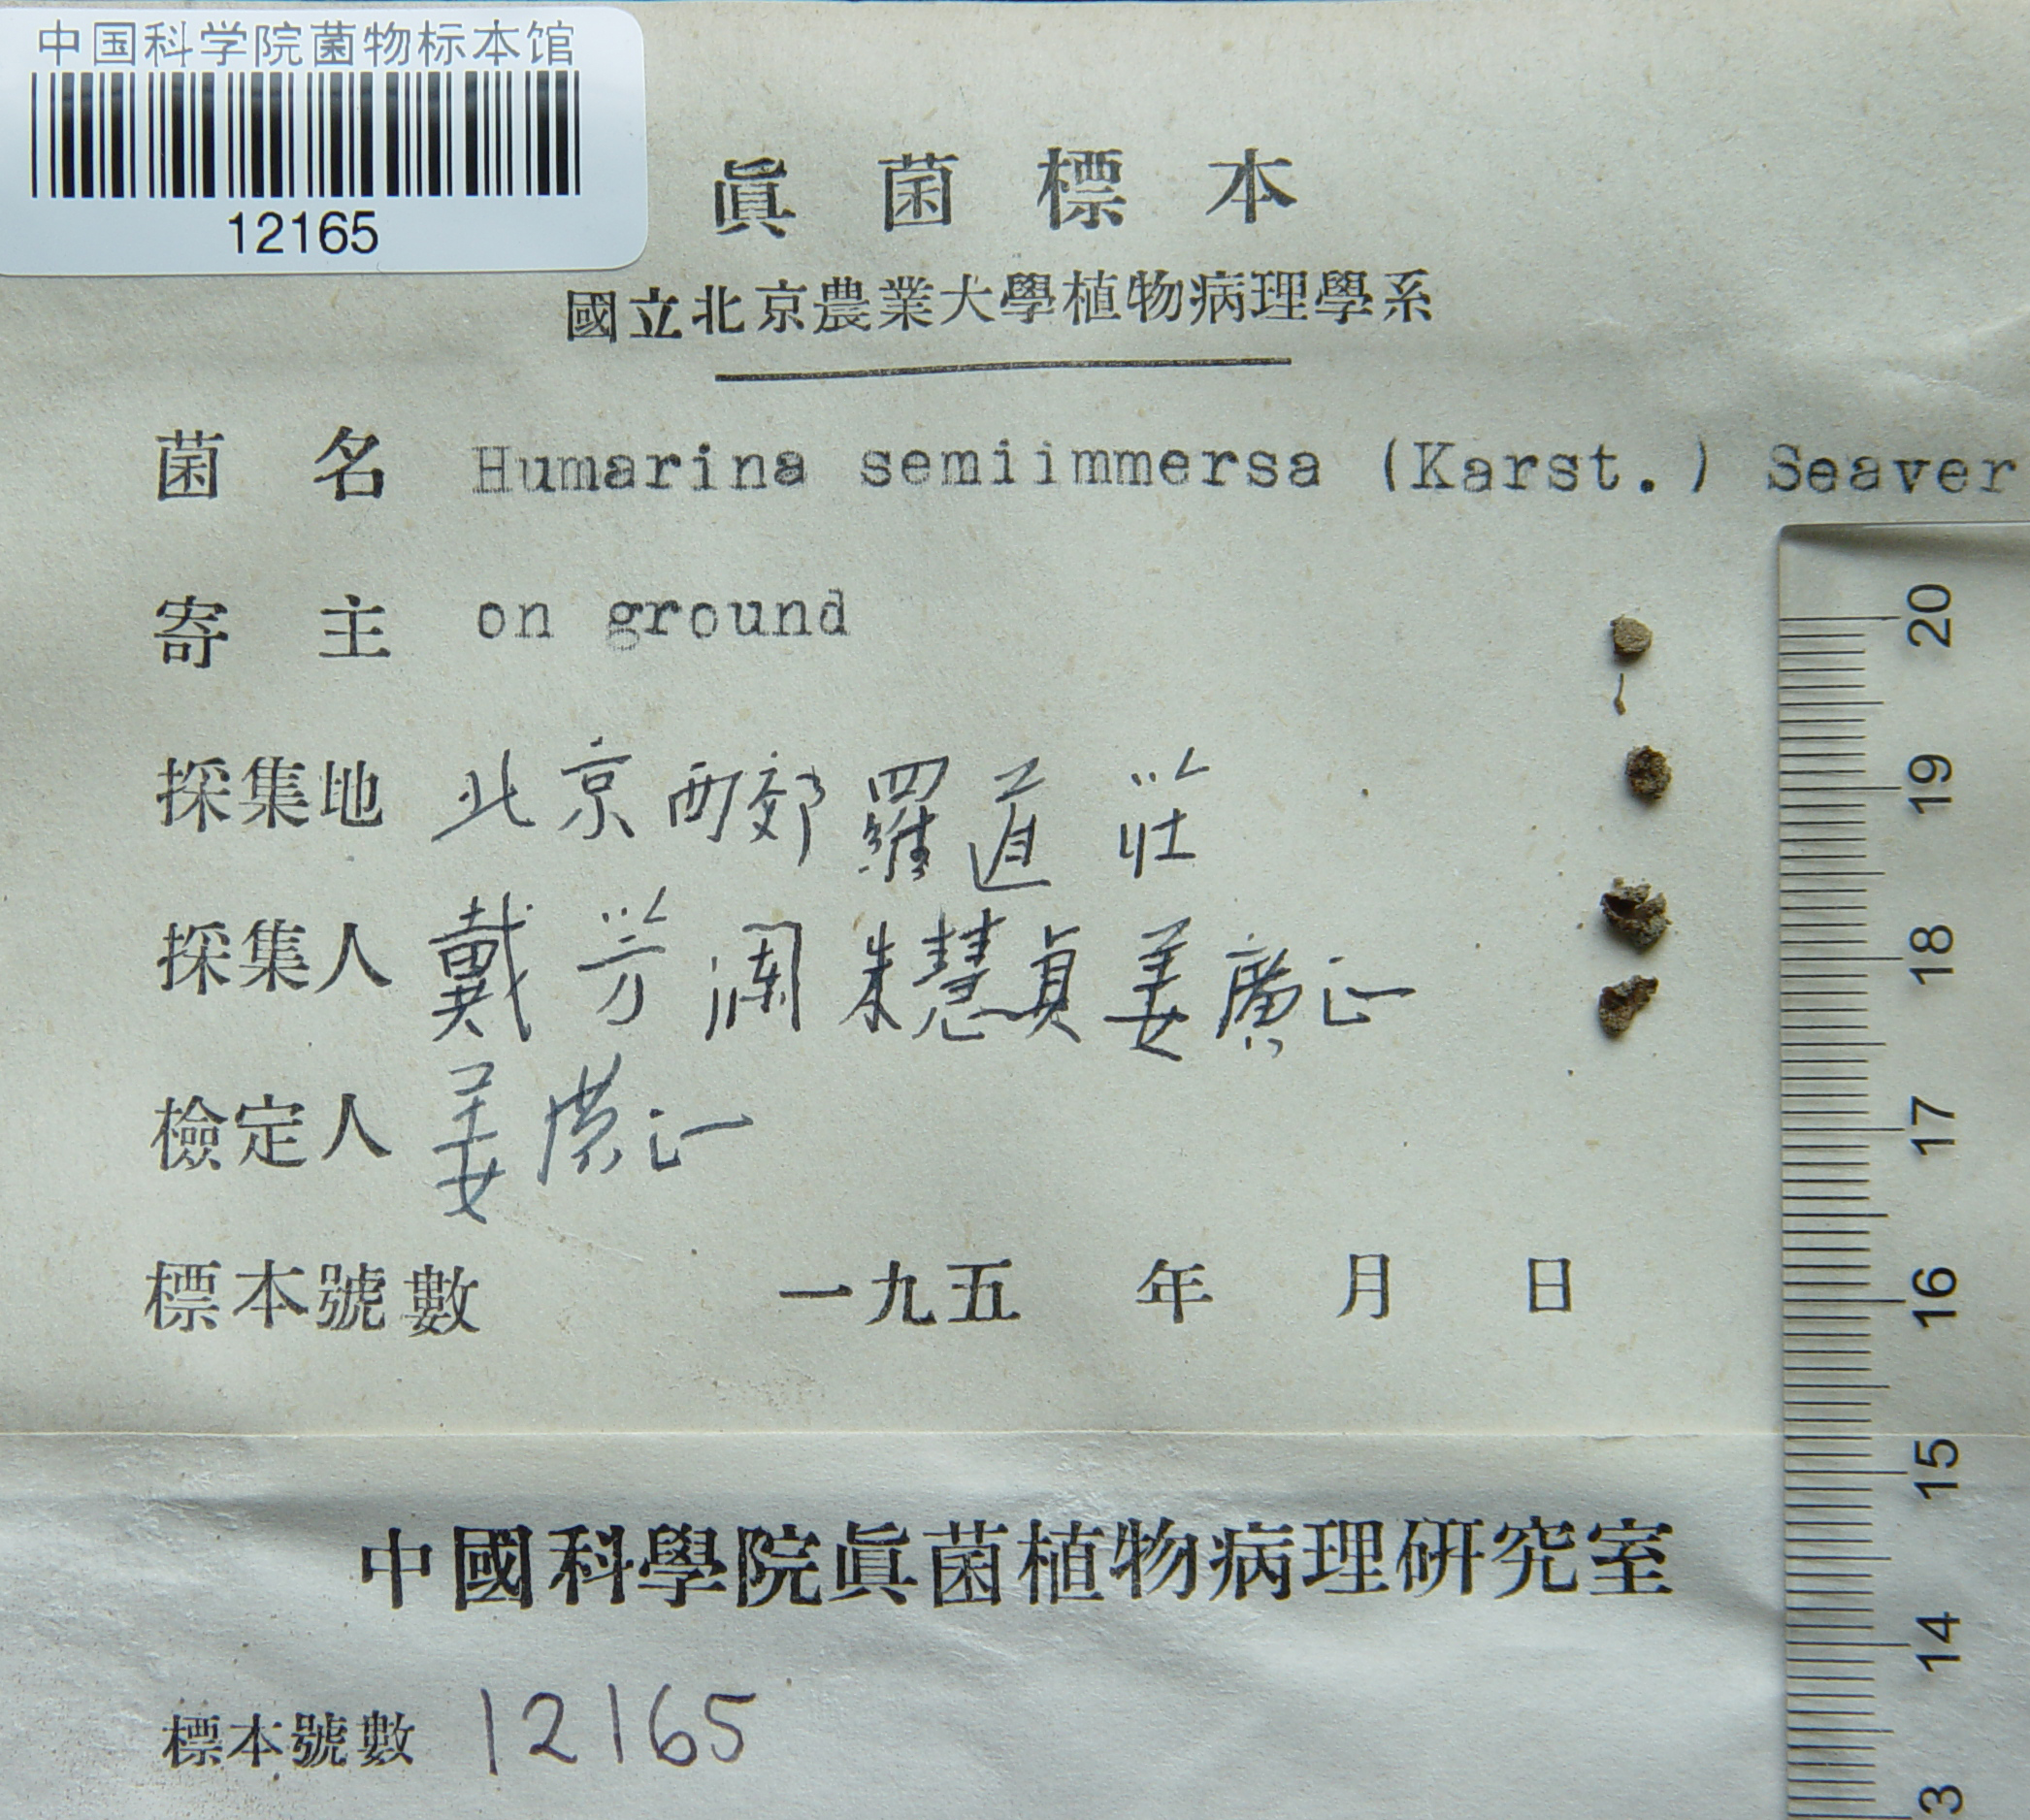 中国科学院菌物标本馆
12165
眞菌標本
國立北京農業大學植物病理學系
菌名 Humarina semiimmersa (Karst.) Seaver
寄主 on ground
採集地 北京西郊羅道莊
採集人 戴芳澜 朱慧真 姜廣正
檢定人 姜廣正
標本號數 一九五 年 月 日
中國科學院眞菌植物病理研究室
標本號數 12165
20
19
18
17
16
15
14
3